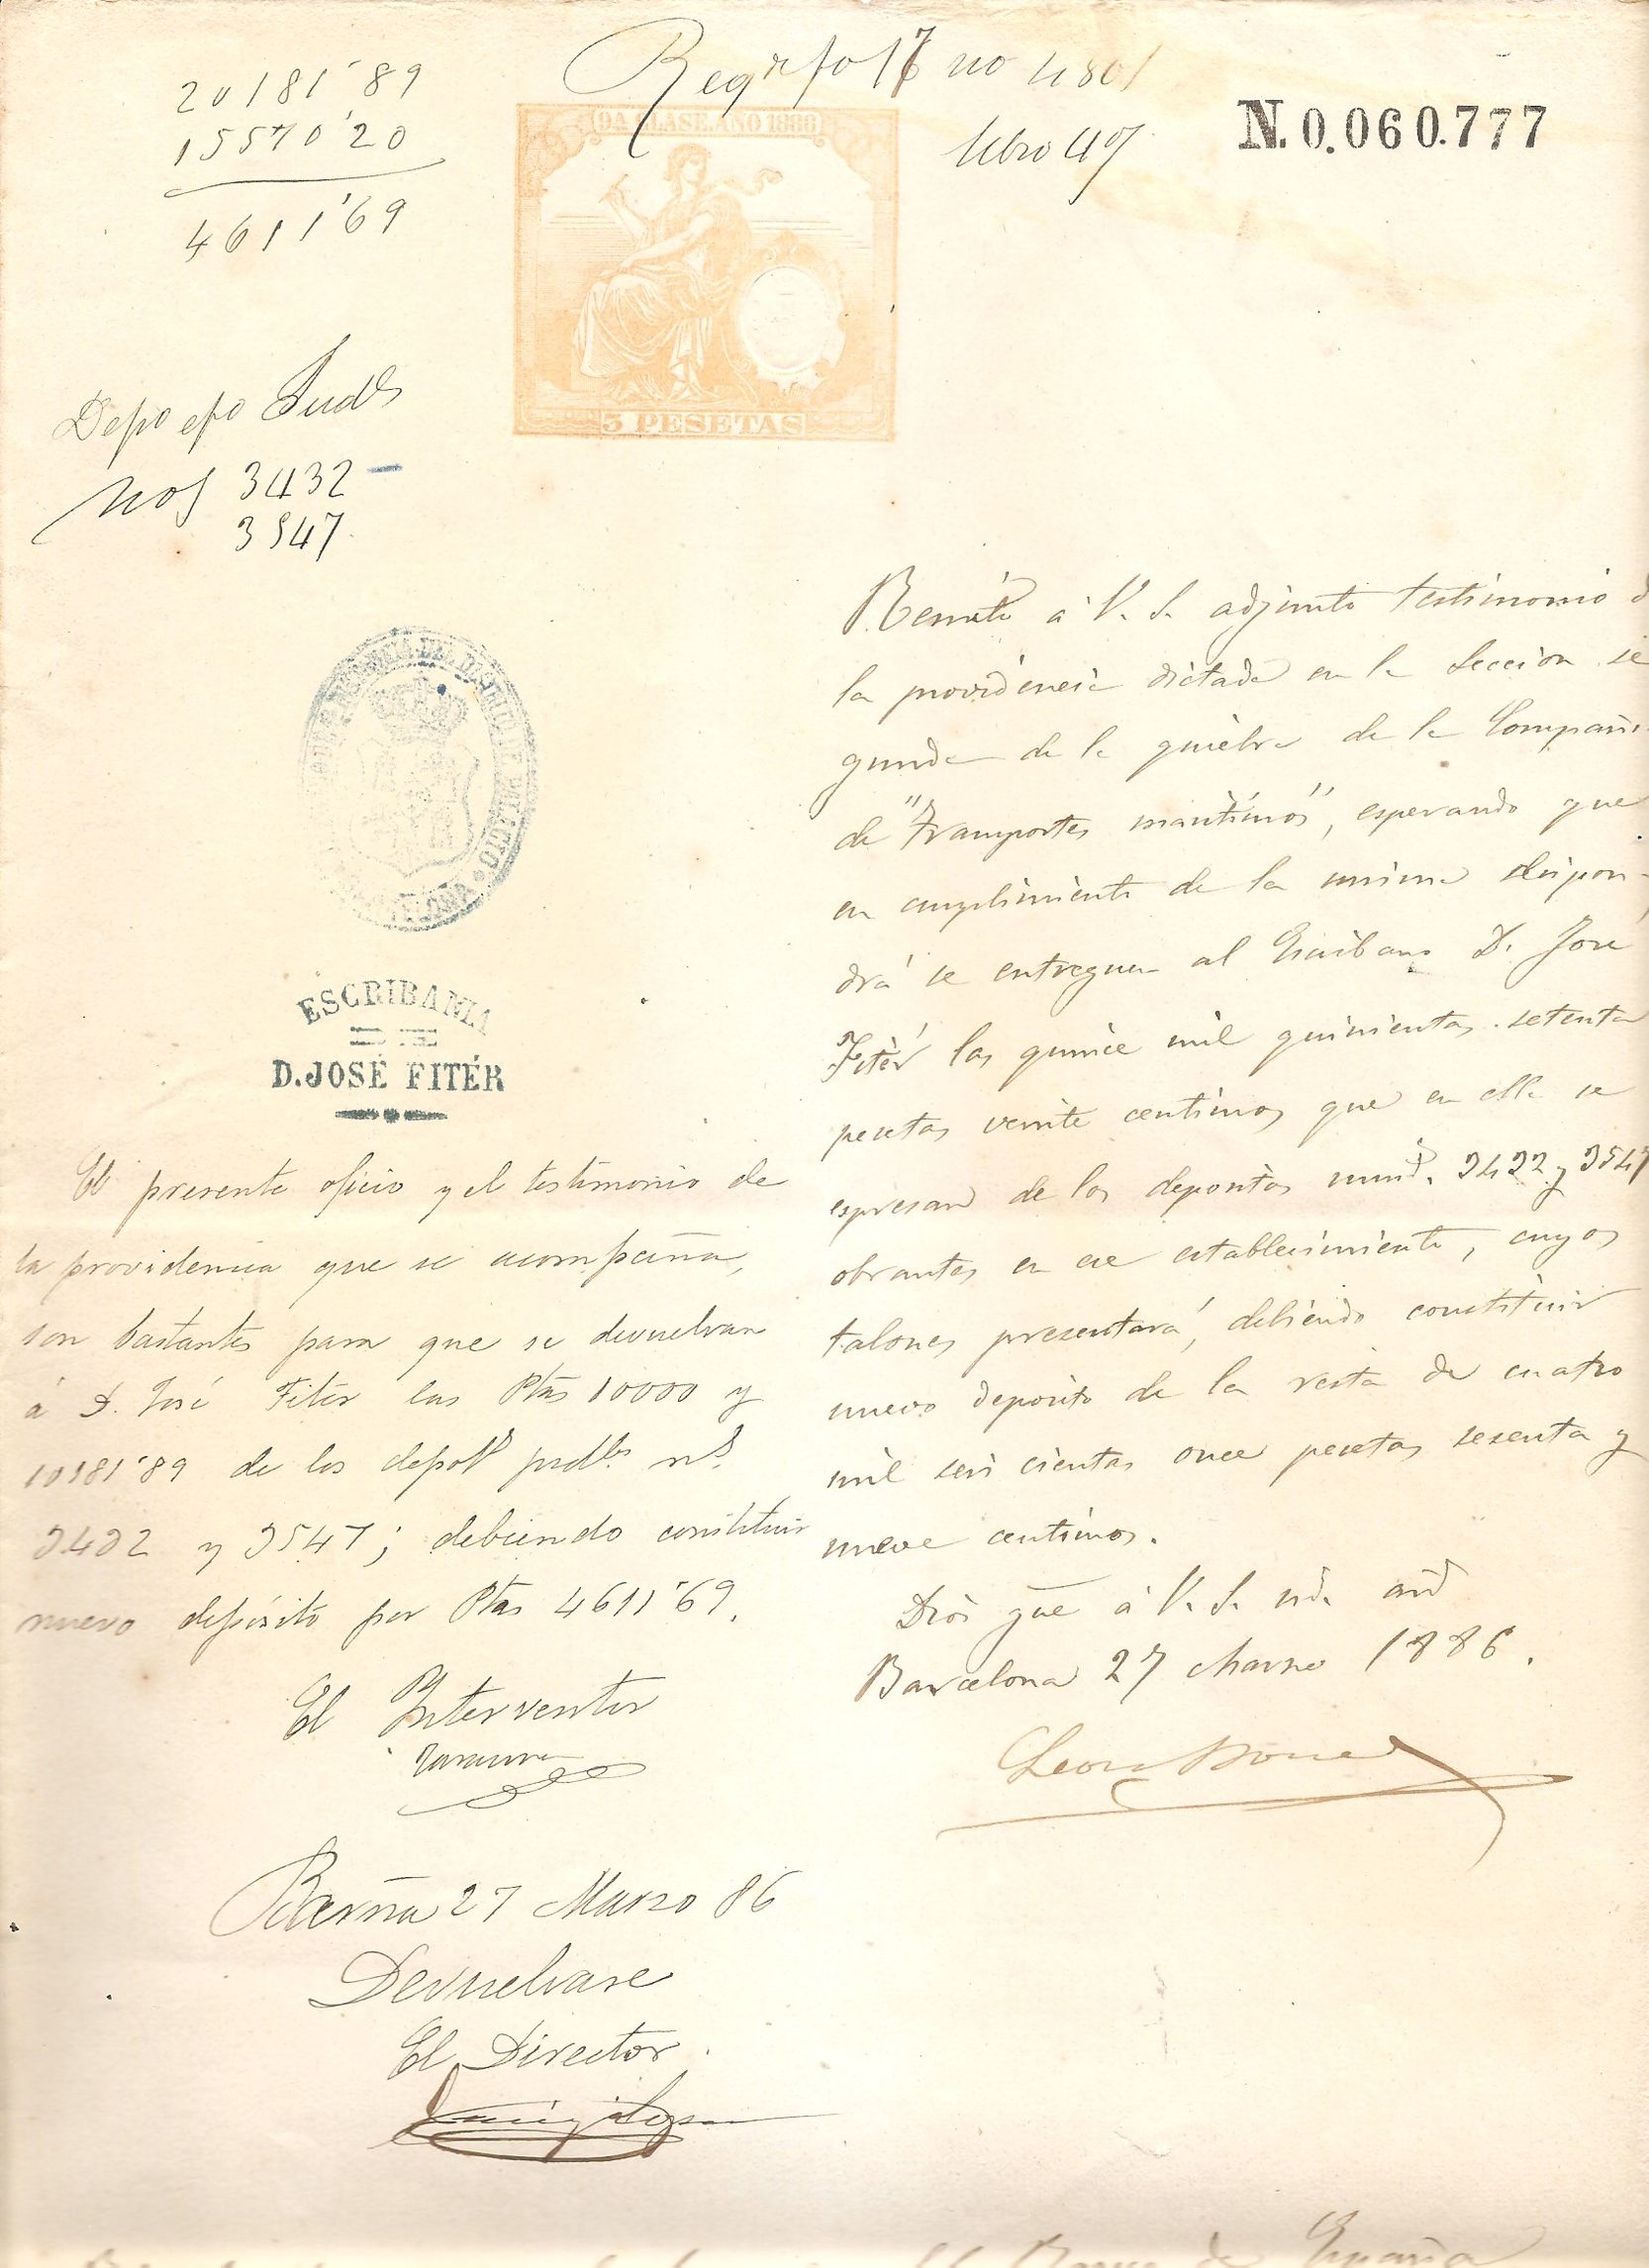 20181'89
15570'20
4611'69
Reg fo 17 no 4801
libro 4º
N. 0.060.777
9A CLASE. AÑO 1886
3 PESETAS
Depo efo Judls
nos 3432
3547
ESCRIBANIA
DE
D. JOSÉ FITÉR
Remito á V. S. adjunto testimonio d
la providencia dictada en la Seccion se
gunda de la quiebra de la Compañi
de "Transportes maritimos", esperando que
en cumplimiento de la misma dispon-
drá se entreguen al Escribano D. Jose
Fitér las quince mil quinientas setenta
pesetas veinte centimos que en ella se
espresan de los depositos num.s 3432 y 3547
obrantes en ese establecimiento, cuyos
talones presentará, debiendo constituir
nuevo deposito de la resta de cuatro
mil seis cientas once pesetas sesenta y
nueve centimos.
Dios gue á V. S. ms. as
Barcelona 27 Marzo 1886.
Leon Bonel
El presente oficio y el testimonio de
la providencia que se acompaña,
son bastantes para que se devuelvan
á D. José Fiter las Ptas 10000 y
10181'89 de los depots judles ns.
3432 y 3547; debiendo constituir
nuevo depósito por Ptas 4611'69.
El Interventor
Barna 27 Marzo 86
Devuelvase
El Director
Banco de España